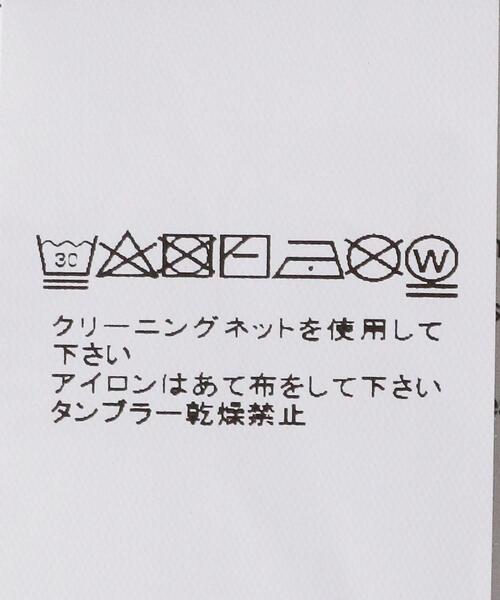 30 W
クリーニングネットを使用して
下さい
アイロンはあて布をして下さい
タンブラー乾燥禁止